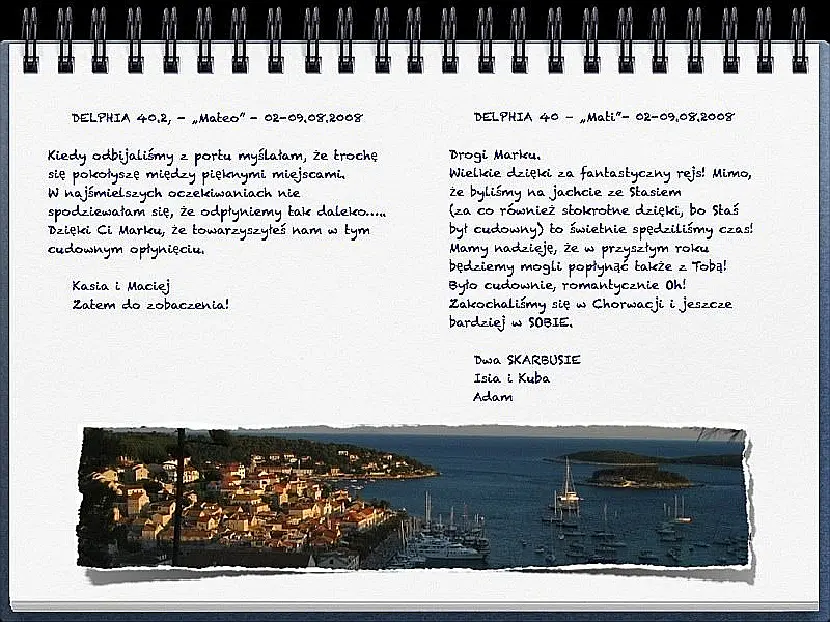 DELPHIA 40.2, - „Mateo” - 02-09.08.2008
Kiedy odbijaliśmy z portu myślałam, że trochę
się pokołyszę między pięknymi miejscami.
W najśmielszych oczekiwaniach nie
spodziewałam się, że odpłyniemy tak daleko.....
Dzięki Ci Marku, że towarzyszyłeś nam w tym
cudownym opłynięciu.
Kasia i Maciej
Zatem do zobaczenia!
DELPHIA 40 - „Mati”- 02-09.08.2008
Drogi Marku.
Wielkie dzięki za fantastyczny rejs! Mimo,
że byliśmy na jachcie ze Stasiem
(za co również stokrotne dzięki, bo Staś
był cudowny) to świetnie spędziliśmy czas!
Mamy nadzieję, że w przyszłym roku
będziemy mogli popłynąć także z Tobą!
Było cudownie, romantycznie Oh!
Zakochaliśmy się w Chorwacji i jeszcze
bardziej w SOBIE.
Dwa SKARBUSIE
Isia i Kuba
Adam